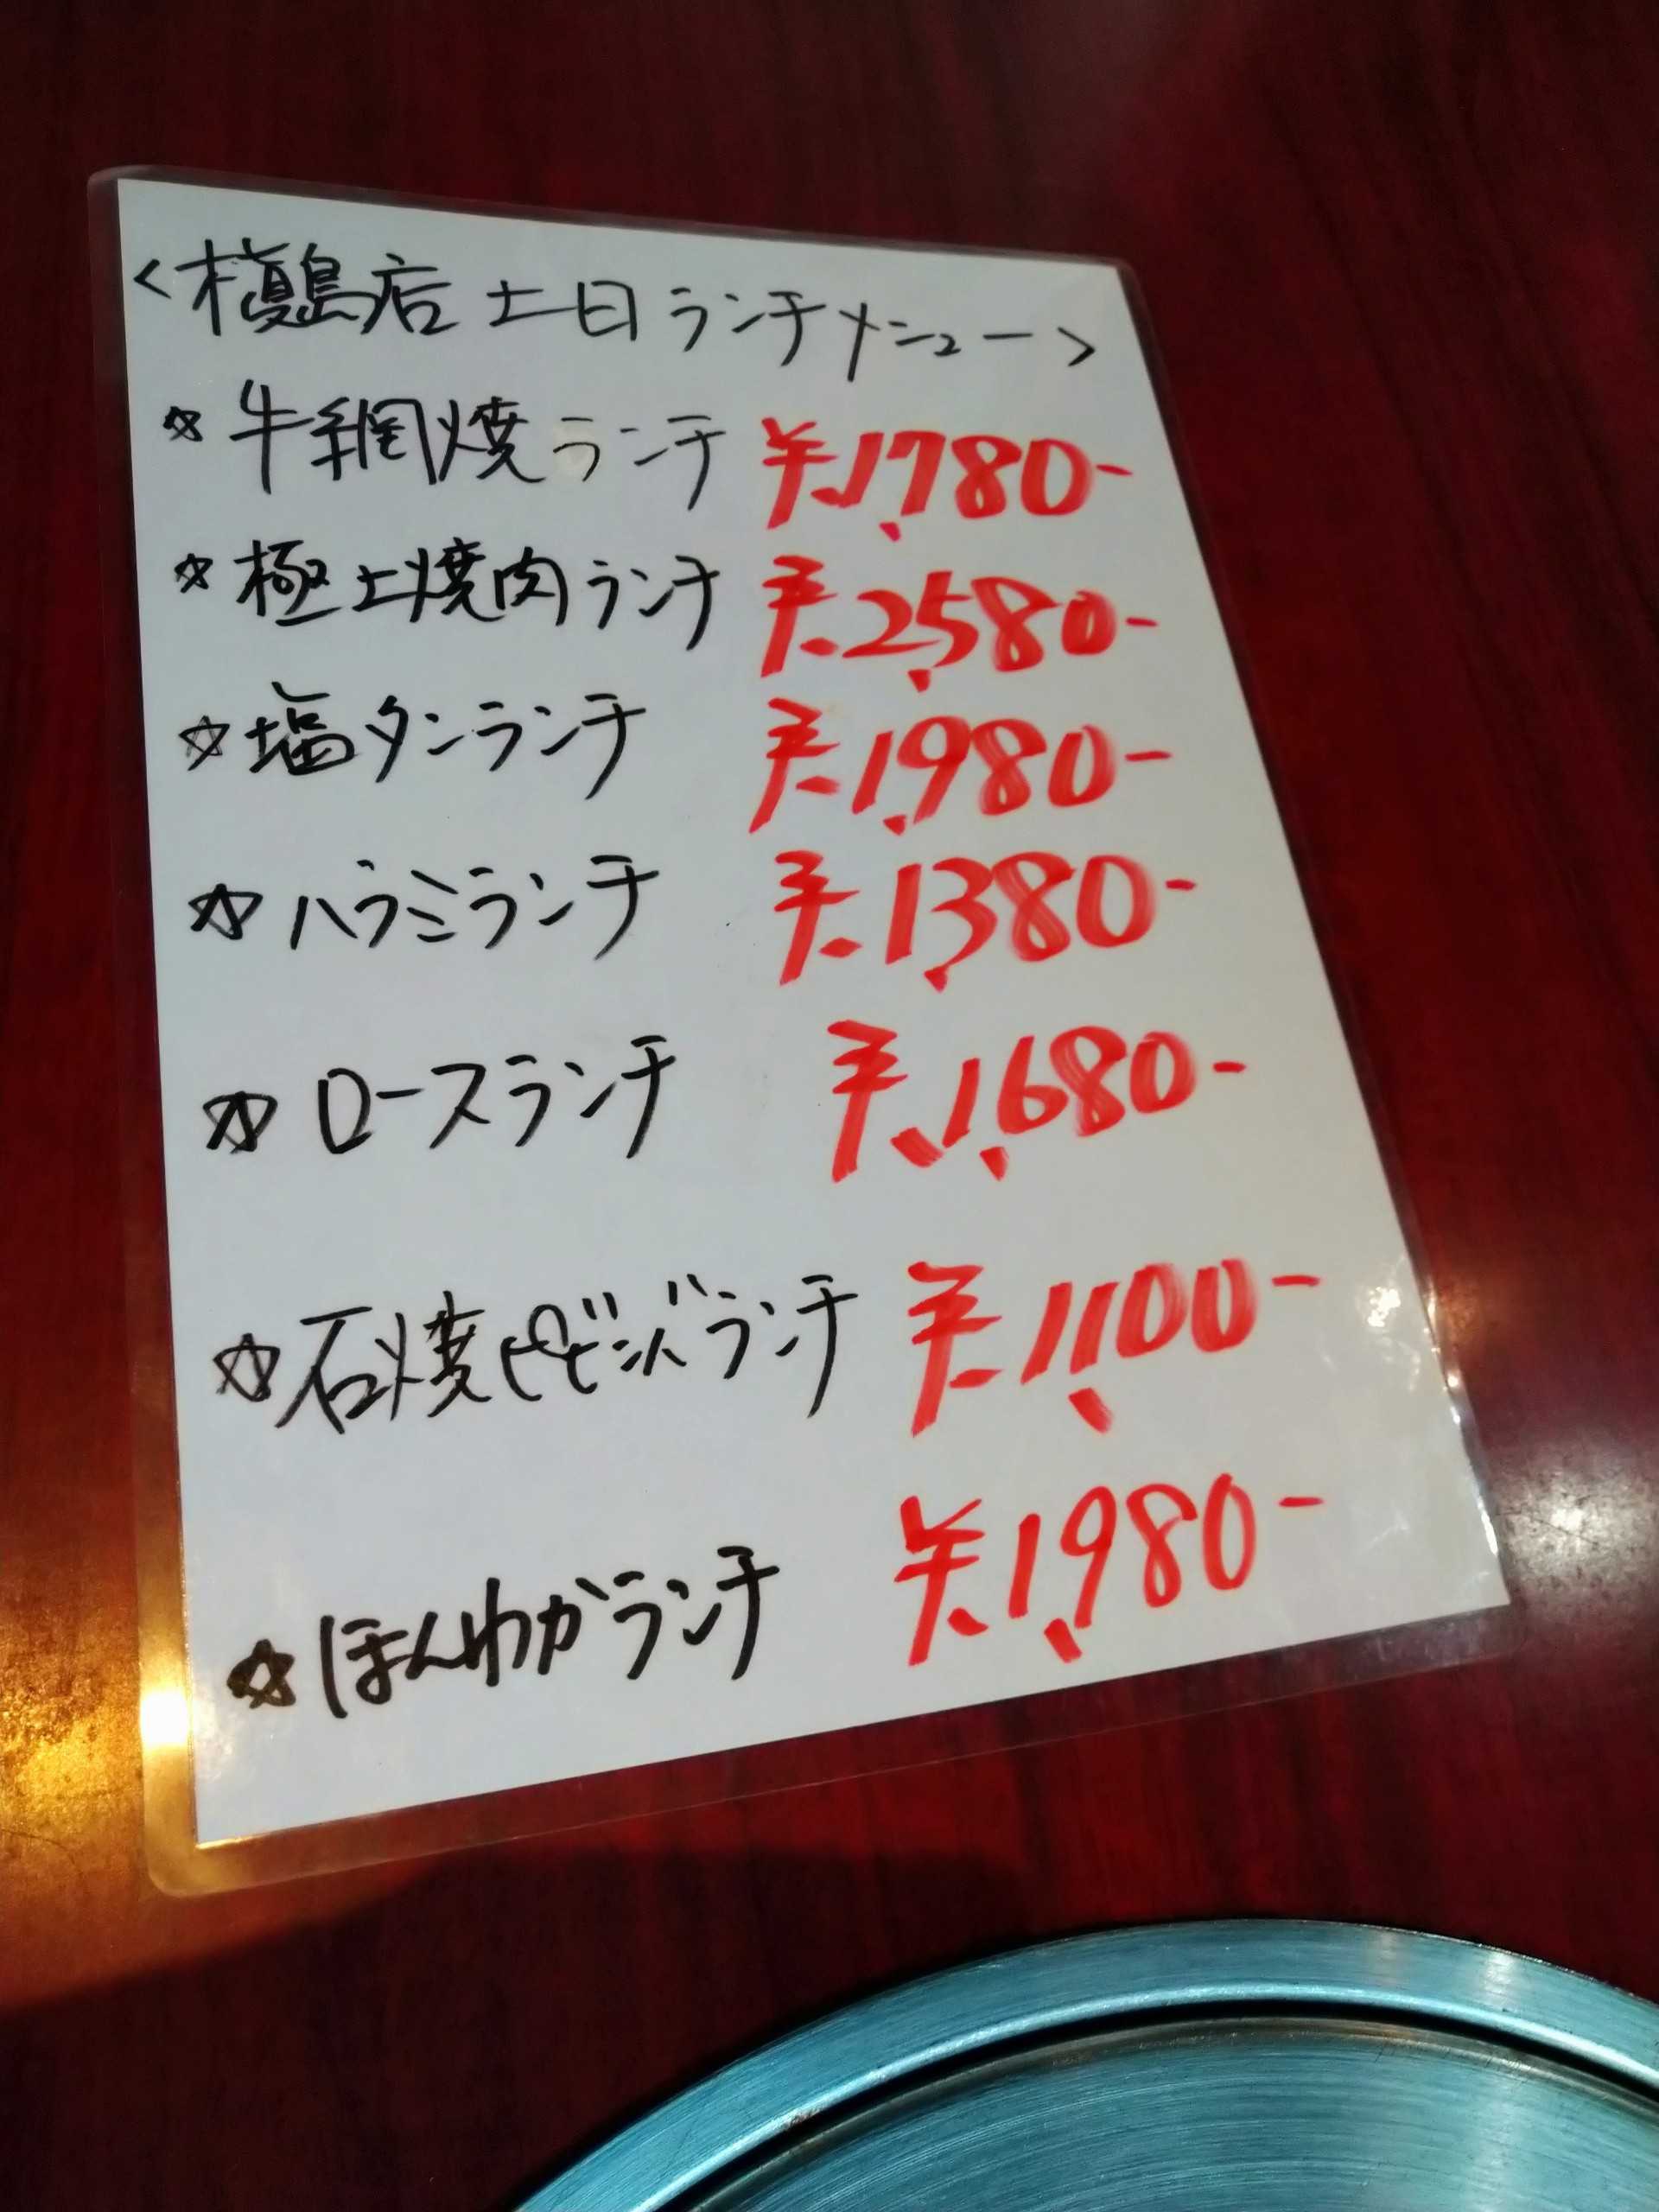 <槙島店 土日ランチメニュー>
☆牛網焼ランチ ¥1,780-
☆極上焼肉ランチ ¥2,580-
☆塩タンランチ ¥1,980-
☆ハラミランチ ¥1,380-
☆ロースランチ ¥1,680-
☆石焼ビビンバランチ ¥1,100-
☆ほんわかランチ ¥1,980-